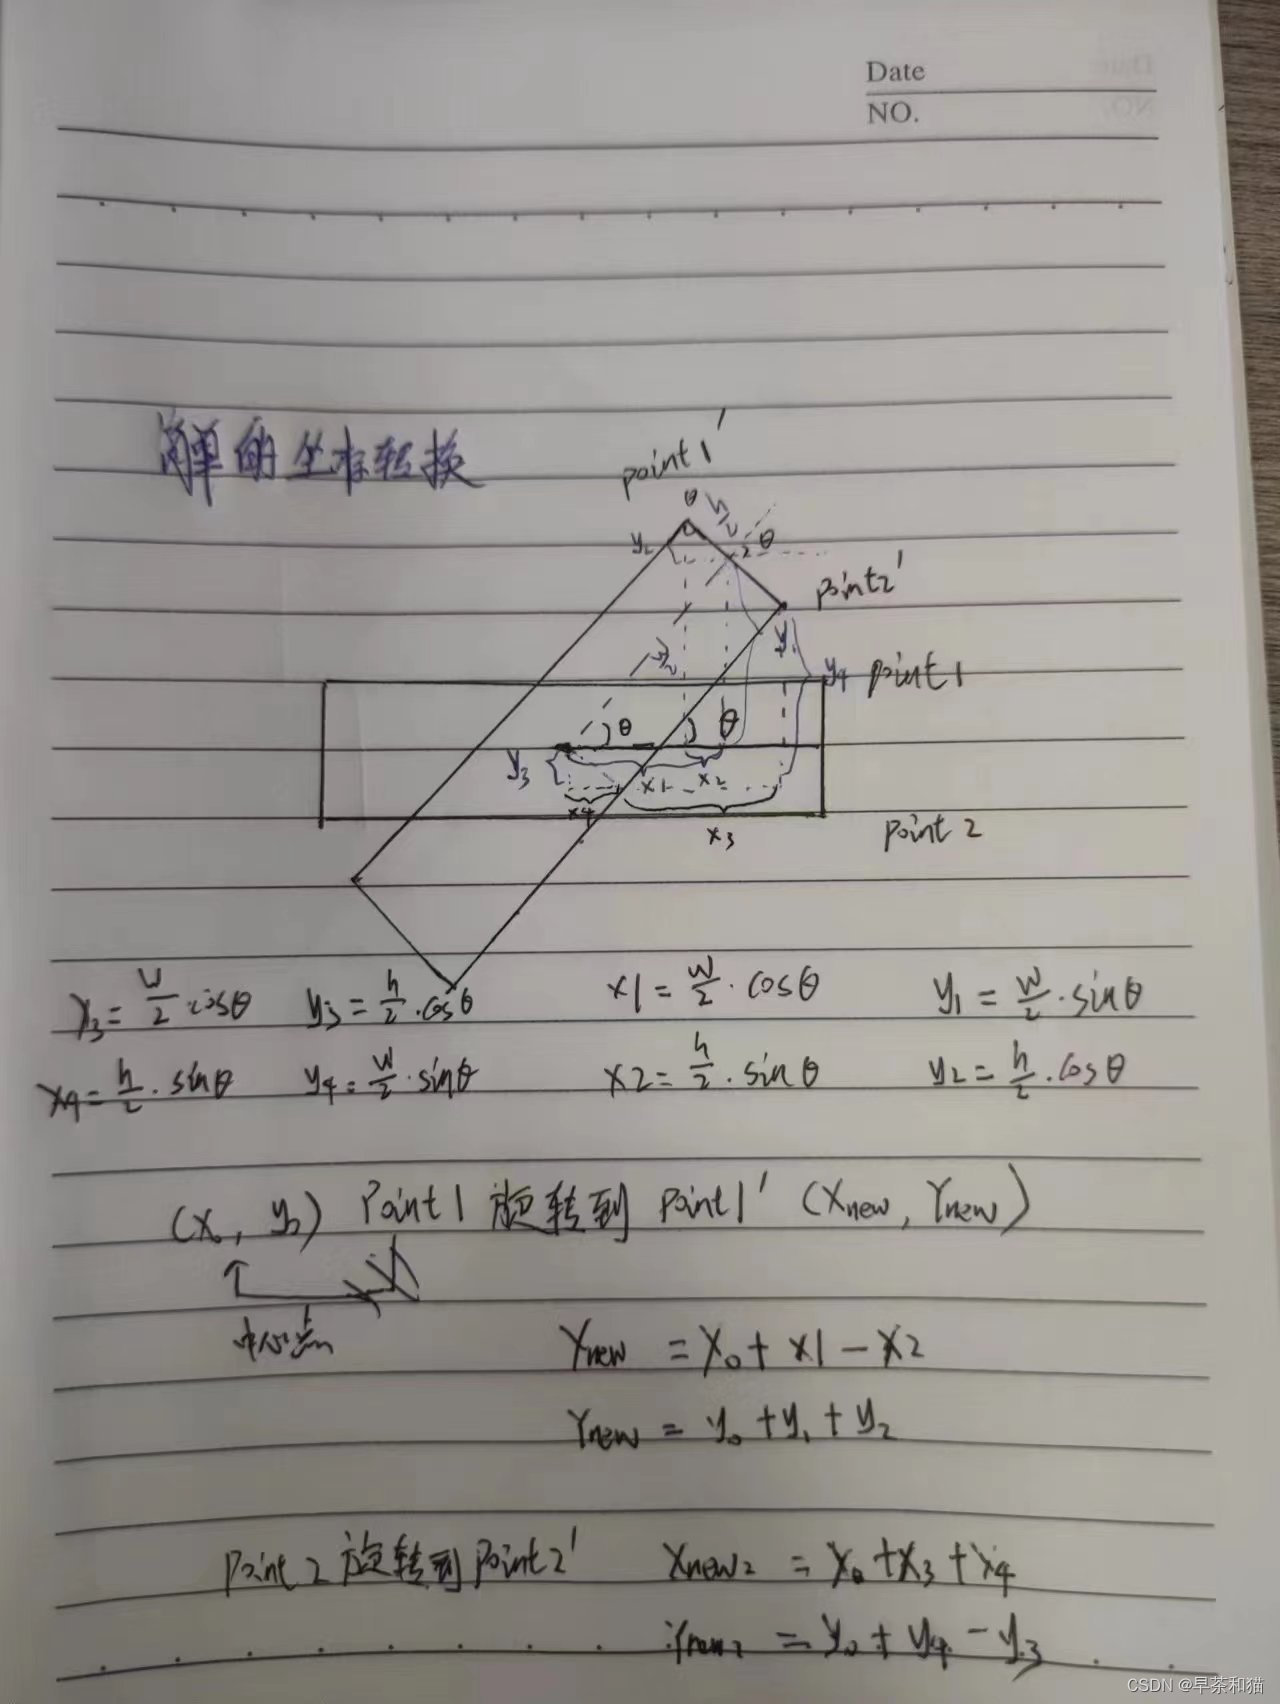 Date
NO.
简单的坐标转换
point1'
θ h/2
y2 θ
point2'
w/2 y1
y4 point1
θ θ
y3 x1 x2
x4
x3 point 2
x3 = w/2 · cosθ y3 = h/2 · cosθ x1 = w/2 · cosθ y1 = w/2 · sinθ
x4 = h/2 · sinθ y4 = w/2 · sinθ x2 = h/2 · sinθ y2 = h/2 · cosθ
(x0, y0) Point1 旋转到 point1' (Xnew, Ynew)
中心点
Xnew = X0 + x1 - x2
Ynew = y0 + y1 + y2
Point 2 旋转到 point2' Xnew2 = X0 + x3 + x4
Ynew2 = y0 + y4 - y3
CSDN @早茶和猫